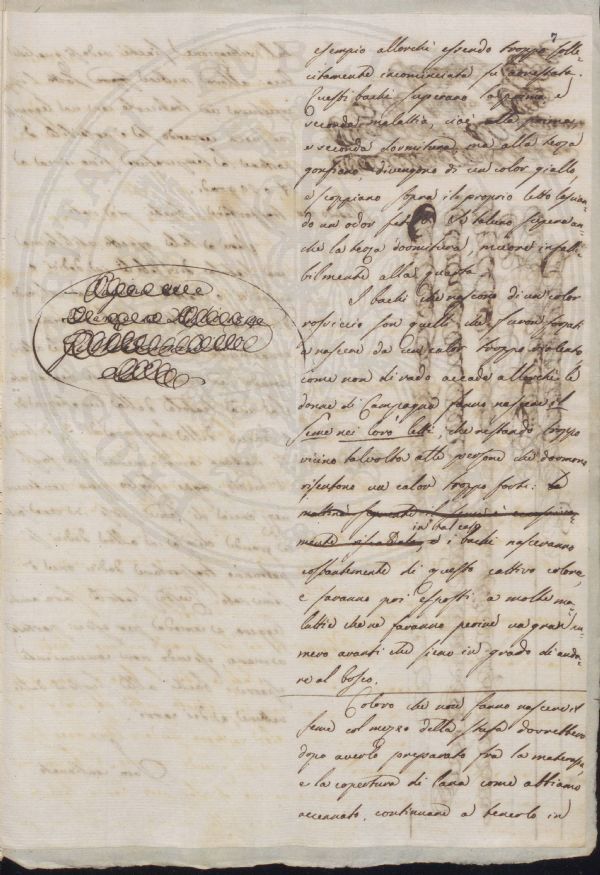 7
esempio allorchè essendo troppo solle-
citamente incominciata fu arrestata.
Questi bachi superano la prima e
seconda malattia, cioè alla prima,
e seconda dormitura, ma alla terza
gonfiano divengono di un color giallo,
e scoppiano sopra il proprio letto lascian-
do un odor Se taluno supera an-
che la terza dormitura, muore infalli-
bilmente alla quarta.
I bachi che nascono di un color
rossiccio son quelli che furon forzati
a nascere da un calor troppo violento
come non di rado accade allorchè le
donne di Campagna fanno nascere il
seme nei loro letti, che restando troppo
vicino talvolta alle persone che dormono
risentono un calor troppo forte:
in tal caso
i bachi nasceranno
costantemente di questo cattivo colore,
e saranno poi esposti a molte ma-
lattie che ne faranno perire un gran nu-
mero avanti che sieno in grado di anda-
re al bosco.
Coloro che non fanno nascere il
seme col mezzo della stufa dovrebbero
dopo averlo preparato fra la materassa,
e la copertura di lana come abbiamo
accennato, continuare a tenerlo in